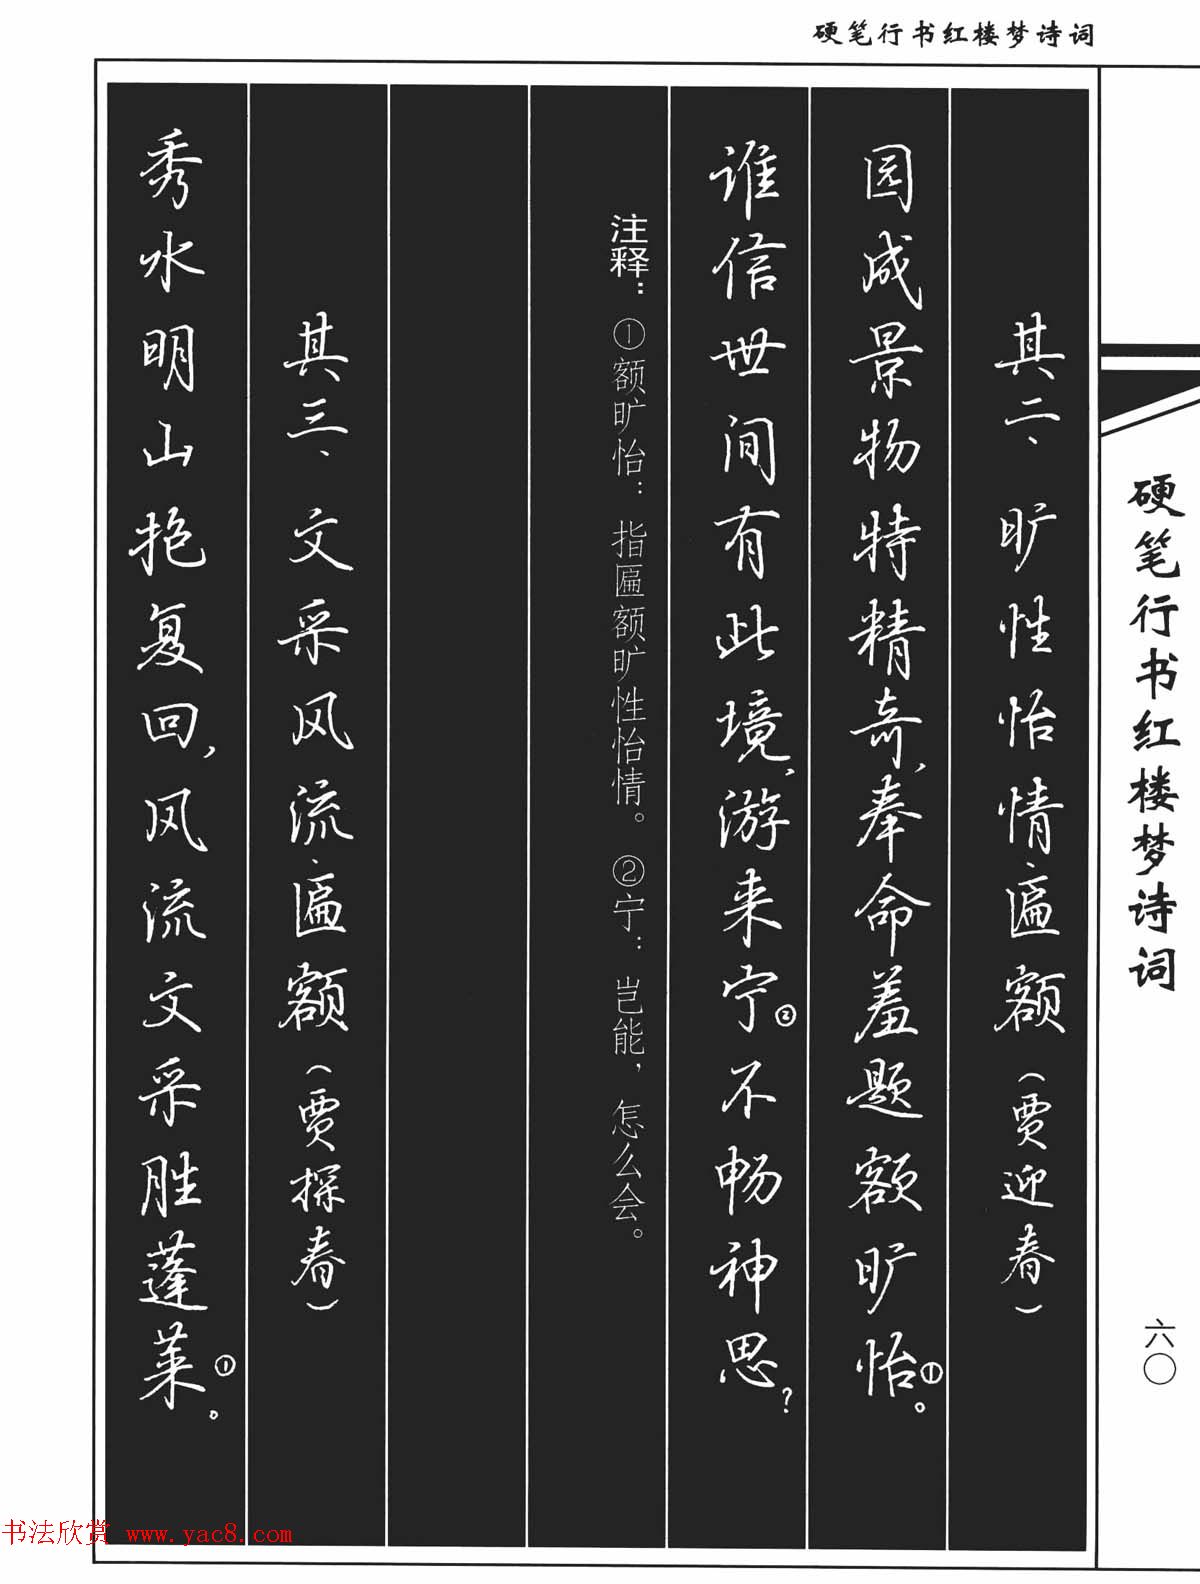 硬笔行书红楼梦诗词
其二、旷性怡情、匾额(贾迎春)
园成景物特精奇,奉命羞题额旷怡①。
谁信世间有此境,游来宁②不畅神思?
注释:①额旷怡:指匾额旷性怡情。②宁:岂能,怎么会。
其三、文采风流、匾额(贾探春)
秀水明山抱复回,风流文采胜蓬莱①。
硬笔行书红楼梦诗词
六〇
书法欣赏 www.yac8.com